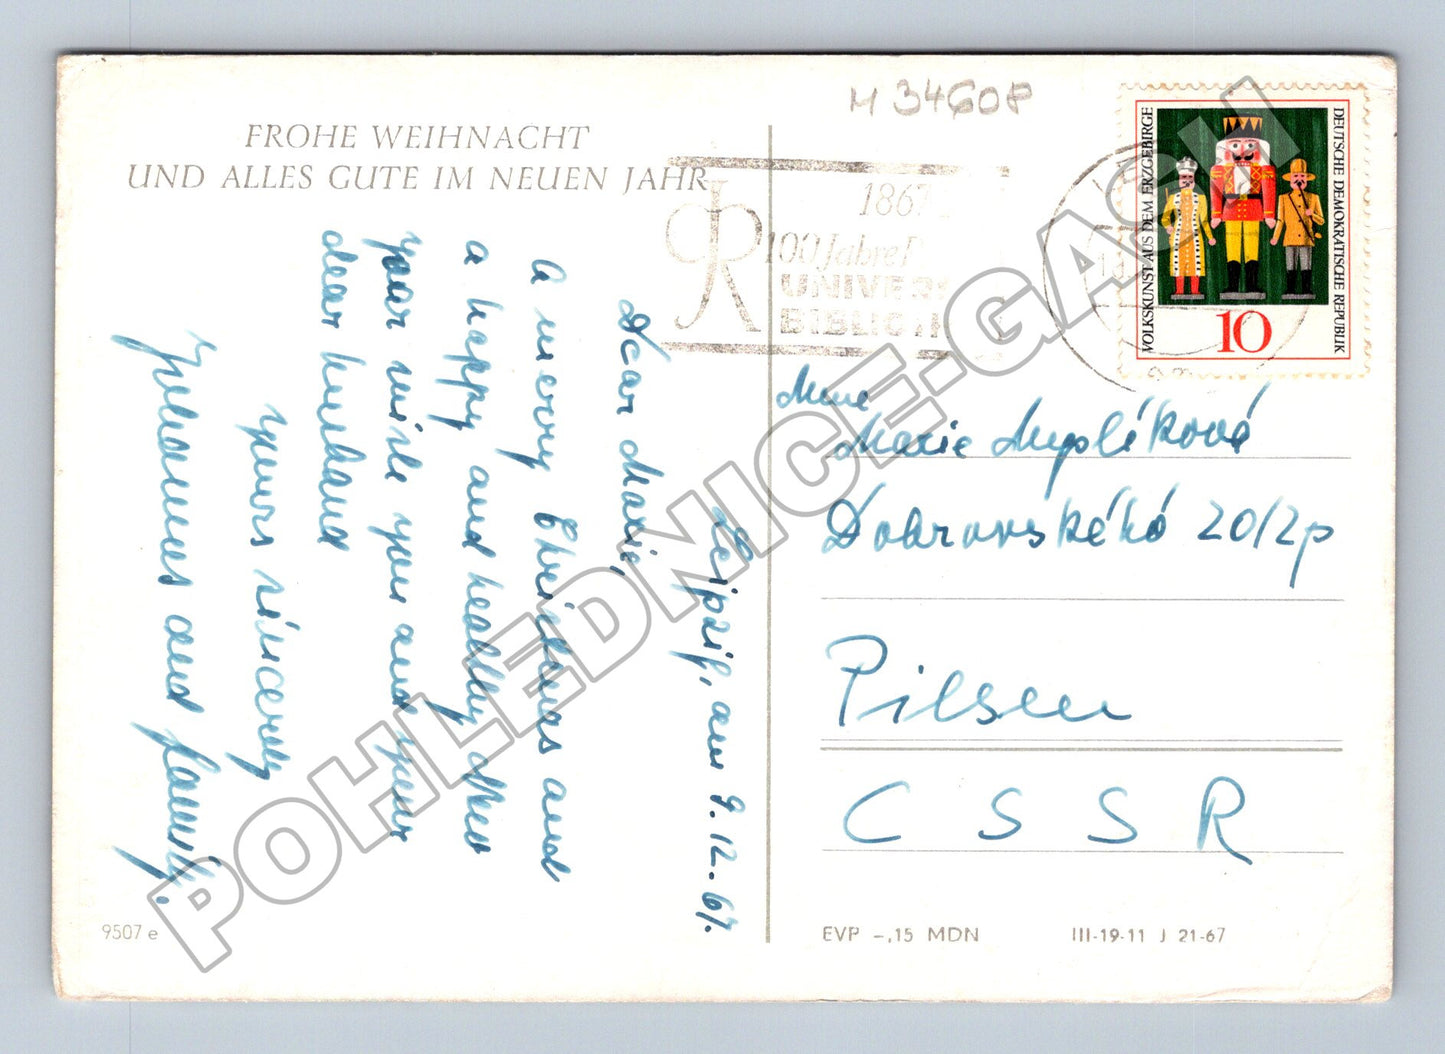 FROHE WEIHNACHT
UND ALLES GUTE IM NEUEN JAHR
Leipzig, am 9.12.67.
Dear Marie,
a merry Christmas and
a happy and healthy New
year wish you and your
dear husband
yours sincerely
Johannes and family.
9507 e
M 3460P
1867
100 Jahre
UNIVERS
BIBLIOTH
VOLKSKUNST AUS DEM ERZGEBIRGE
DEUTSCHE DEMOKRATISCHE REPUBLIK
10
Marie Myslíková
20/2p
Pilsen
C S S R
EVP -,15 MDN
III-19-11 J 21-67
POHLEDNICE-GASH